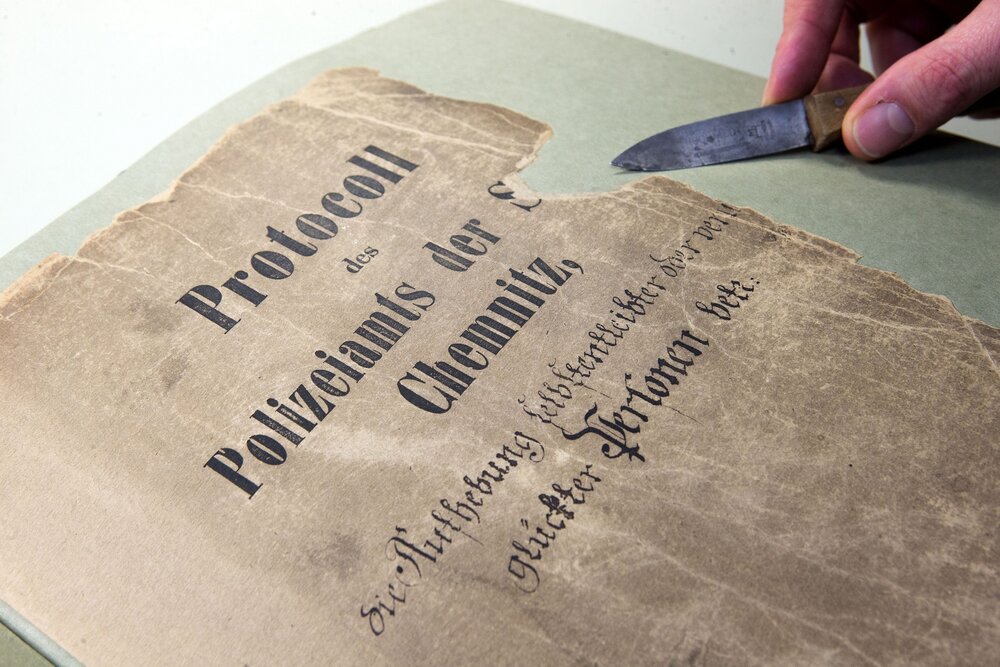 Protocoll
des
Polizeiamts der S
Chemnitz,
die Aufhebung selbstentleibter oder verun
glückter Personen betr: